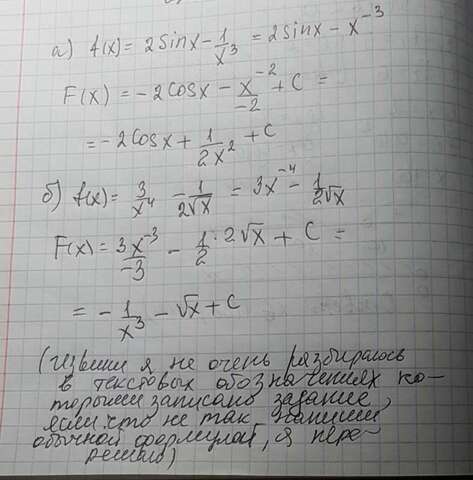 а) f(x) = 2sinx - 1/x³ = 2sinx - x⁻³
F(x) = -2cosx - x⁻²/-2 + C =
= -2cosx + 1/2x² + C
б) f(x) = 3/x⁴ - 1/2√x = 3x⁻⁴ - 1/2√x
F(x) = 3x⁻³/-3 - 1/2 · 2√x + C =
= - 1/x³ - √x + C
(извини я не очень разбираюсь
в текстовых обозначениях ко-
торыми записано задание,
если что не так напиши
обычной формулой, я пере-
решаю)